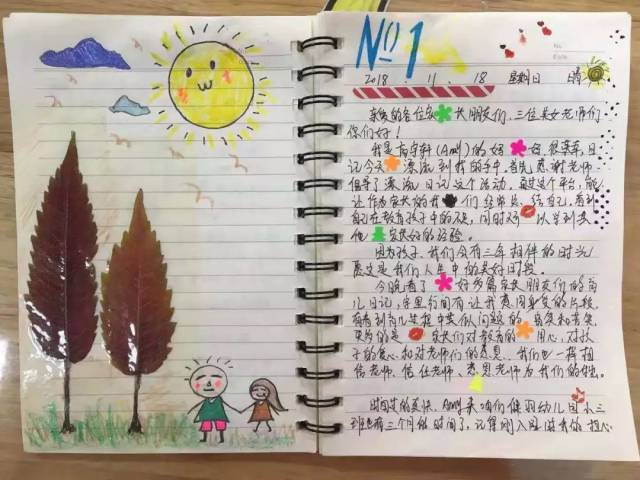 No 1
2018 . 11 . 18 星期日 晴
亲爱的各位家长朋友们、三位美女老师们
你们好！
我是 (Amy)的妈妈,很荣幸,日
记今天漂流到我的手中。首先感谢老师
倡导了漂流日记这个活动,通过这个平台,能
让作为家长的我们经常总结自己,看到
自己在教育孩子中的不足,同时还可以学到其
他家长好的经验。
因为孩子,我们会有三年相伴的时光!
愿这是我们人生中的美好时段。
今晚看了好多篇家长朋友们的育
儿日记,字里行间有让我感同身受的片段,
有看到育儿过程中类似问题的
更多的是家长们对教育的用心、对孩
子的爱心和对老师们的感恩。我们也一样相
信老师、信任老师、感恩老师为我们的付出。
时间过的真快,Amy来咱们 幼儿园小三
班已有三个月的时间了,记得刚入园时我的担心